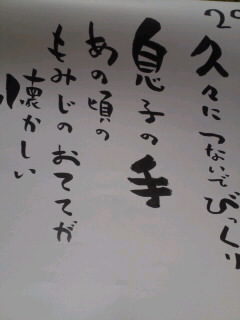 久々につないでびっくり
息子の手
あの頃の
もみじのおててが
懐かしい